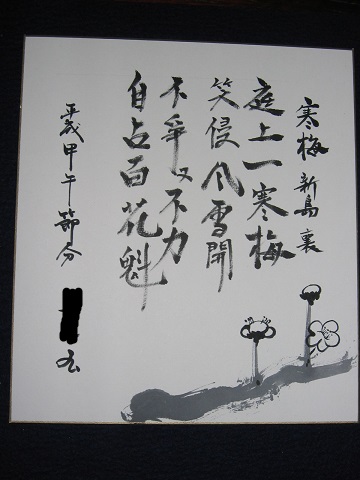 寒梅 新島襄
庭上一寒梅
笑侵風雪開
不争又不力
自占百花魁
平成甲午節分